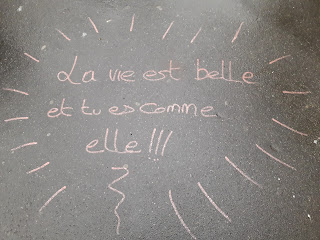 La vie est belle
et tu es comme
elle !!!